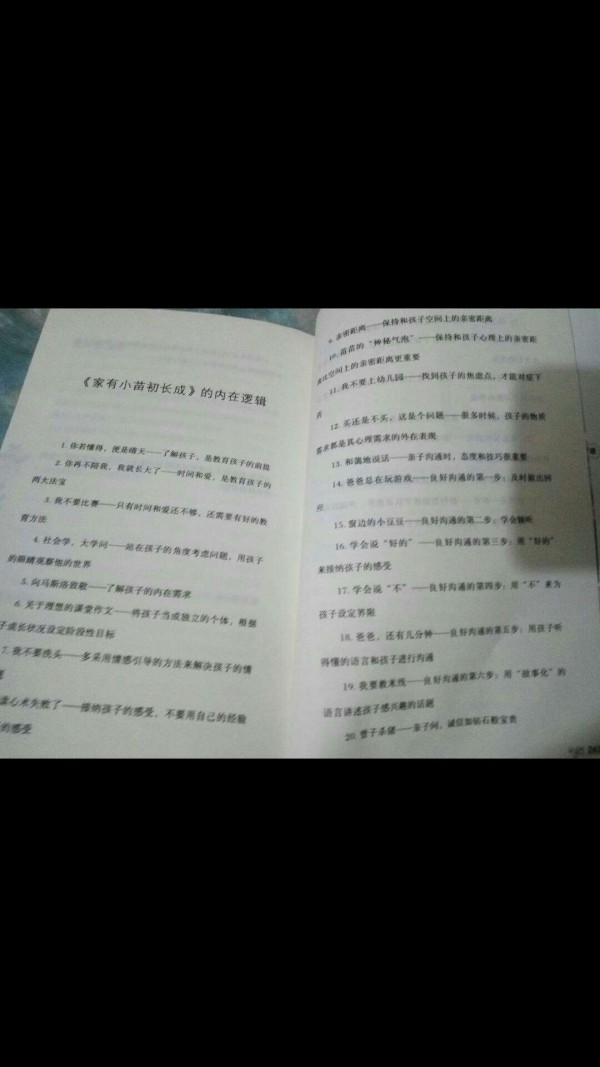 《家有小苗初长成》的内在逻辑
1. 你若懂得，便是晴天——了解孩子，是教育孩子的前提
2. 你再不陪我，我就长大了——时间和爱，是教育孩子的
两大法宝
3. 我不要比赛——只有时间和爱还不够，还需要有好的教
育方法
4. 社会学，大学问——站在孩子的角度考虑问题，用孩子
的眼睛观察他的世界
5. 向马斯洛致敬——了解孩子的内在需求
6. 关于理想的课堂作文——将孩子当成独立的个体，根据
子成长状况设定阶段性目标
7. 我不要洗头——多采用情感引导的方法来解决孩子的情
读心术失败了——接纳孩子的感受，不要用自己的经验
的感受
9. 亲密距离——保持和孩子空间上的亲密距离
10. 苗苗的“神秘气泡”——保持和孩子心理上的亲密距
离比空间上的亲密距离更重要
11. 我不要上幼儿园——找到孩子的焦虑点，才能对症下
药
12. 买还是不买，这是个问题——很多时候，孩子的物质
需求都是其心理需求的外在表现
13. 和蔼地说话——亲子沟通时，态度和技巧很重要
14. 爸爸总在玩游戏——良好沟通的第一步：及时做出回
应
15. 窗边的小豆豆——良好沟通的第二步：学会倾听
16. 学会说“好的”——良好沟通的第三步：用“好的”
来接纳孩子的感受
17. 学会说“不”——良好沟通的第四步：用“不”来为
孩子设定界限
18. 爸爸，还有几分钟——良好沟通的第五步：用孩子听
得懂的语言和孩子进行沟通
19. 我要救米线——良好沟通的第六步：用“故事化”的
语言讲述孩子感兴趣的话题
20. 曾子杀猪——亲子间，诚信如钻石般宝贵